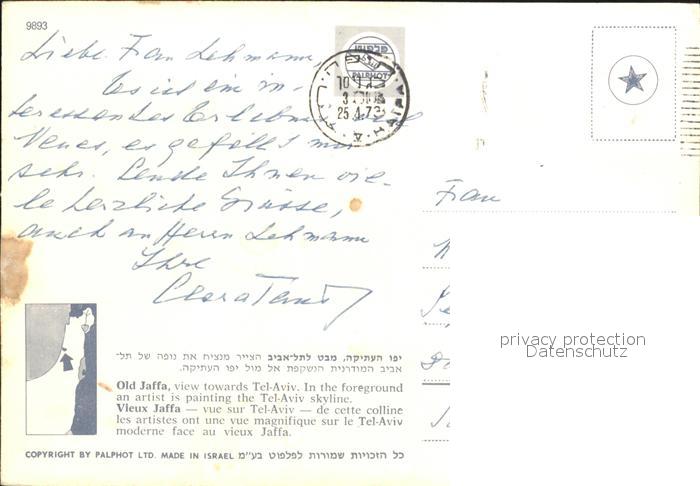 9893
Liebe Frau Lehmann,
Es ist ein in-
teressantes Erlebnis
Neues, es gefällt mir
sehr. Sende Ihnen vie-
le herzliche Grüsse,
auch an Herrn Lehmann
Ihre
Clara
פלפוט
PALPHOT
HAIFA
25.4.73
Frau
privacy protection
Datenschutz
יפו העתיקה, מבט לתל־אביב הצייר מנציח את נופה של תל־
אביב המודרנית הנשקפת אל מול יפו העתיקה.
Old Jaffa, view towards Tel-Aviv. In the foreground
an artist is painting the Tel-Aviv skyline.
Vieux Jaffa — vue sur Tel-Aviv — de cette colline
les artistes ont une vue magnifique sur le Tel-Aviv
moderne face au vieux Jaffa.
COPYRIGHT BY PALPHOT LTD. MADE IN ISRAEL כל הזכויות שמורות לפלפוט בע"מ